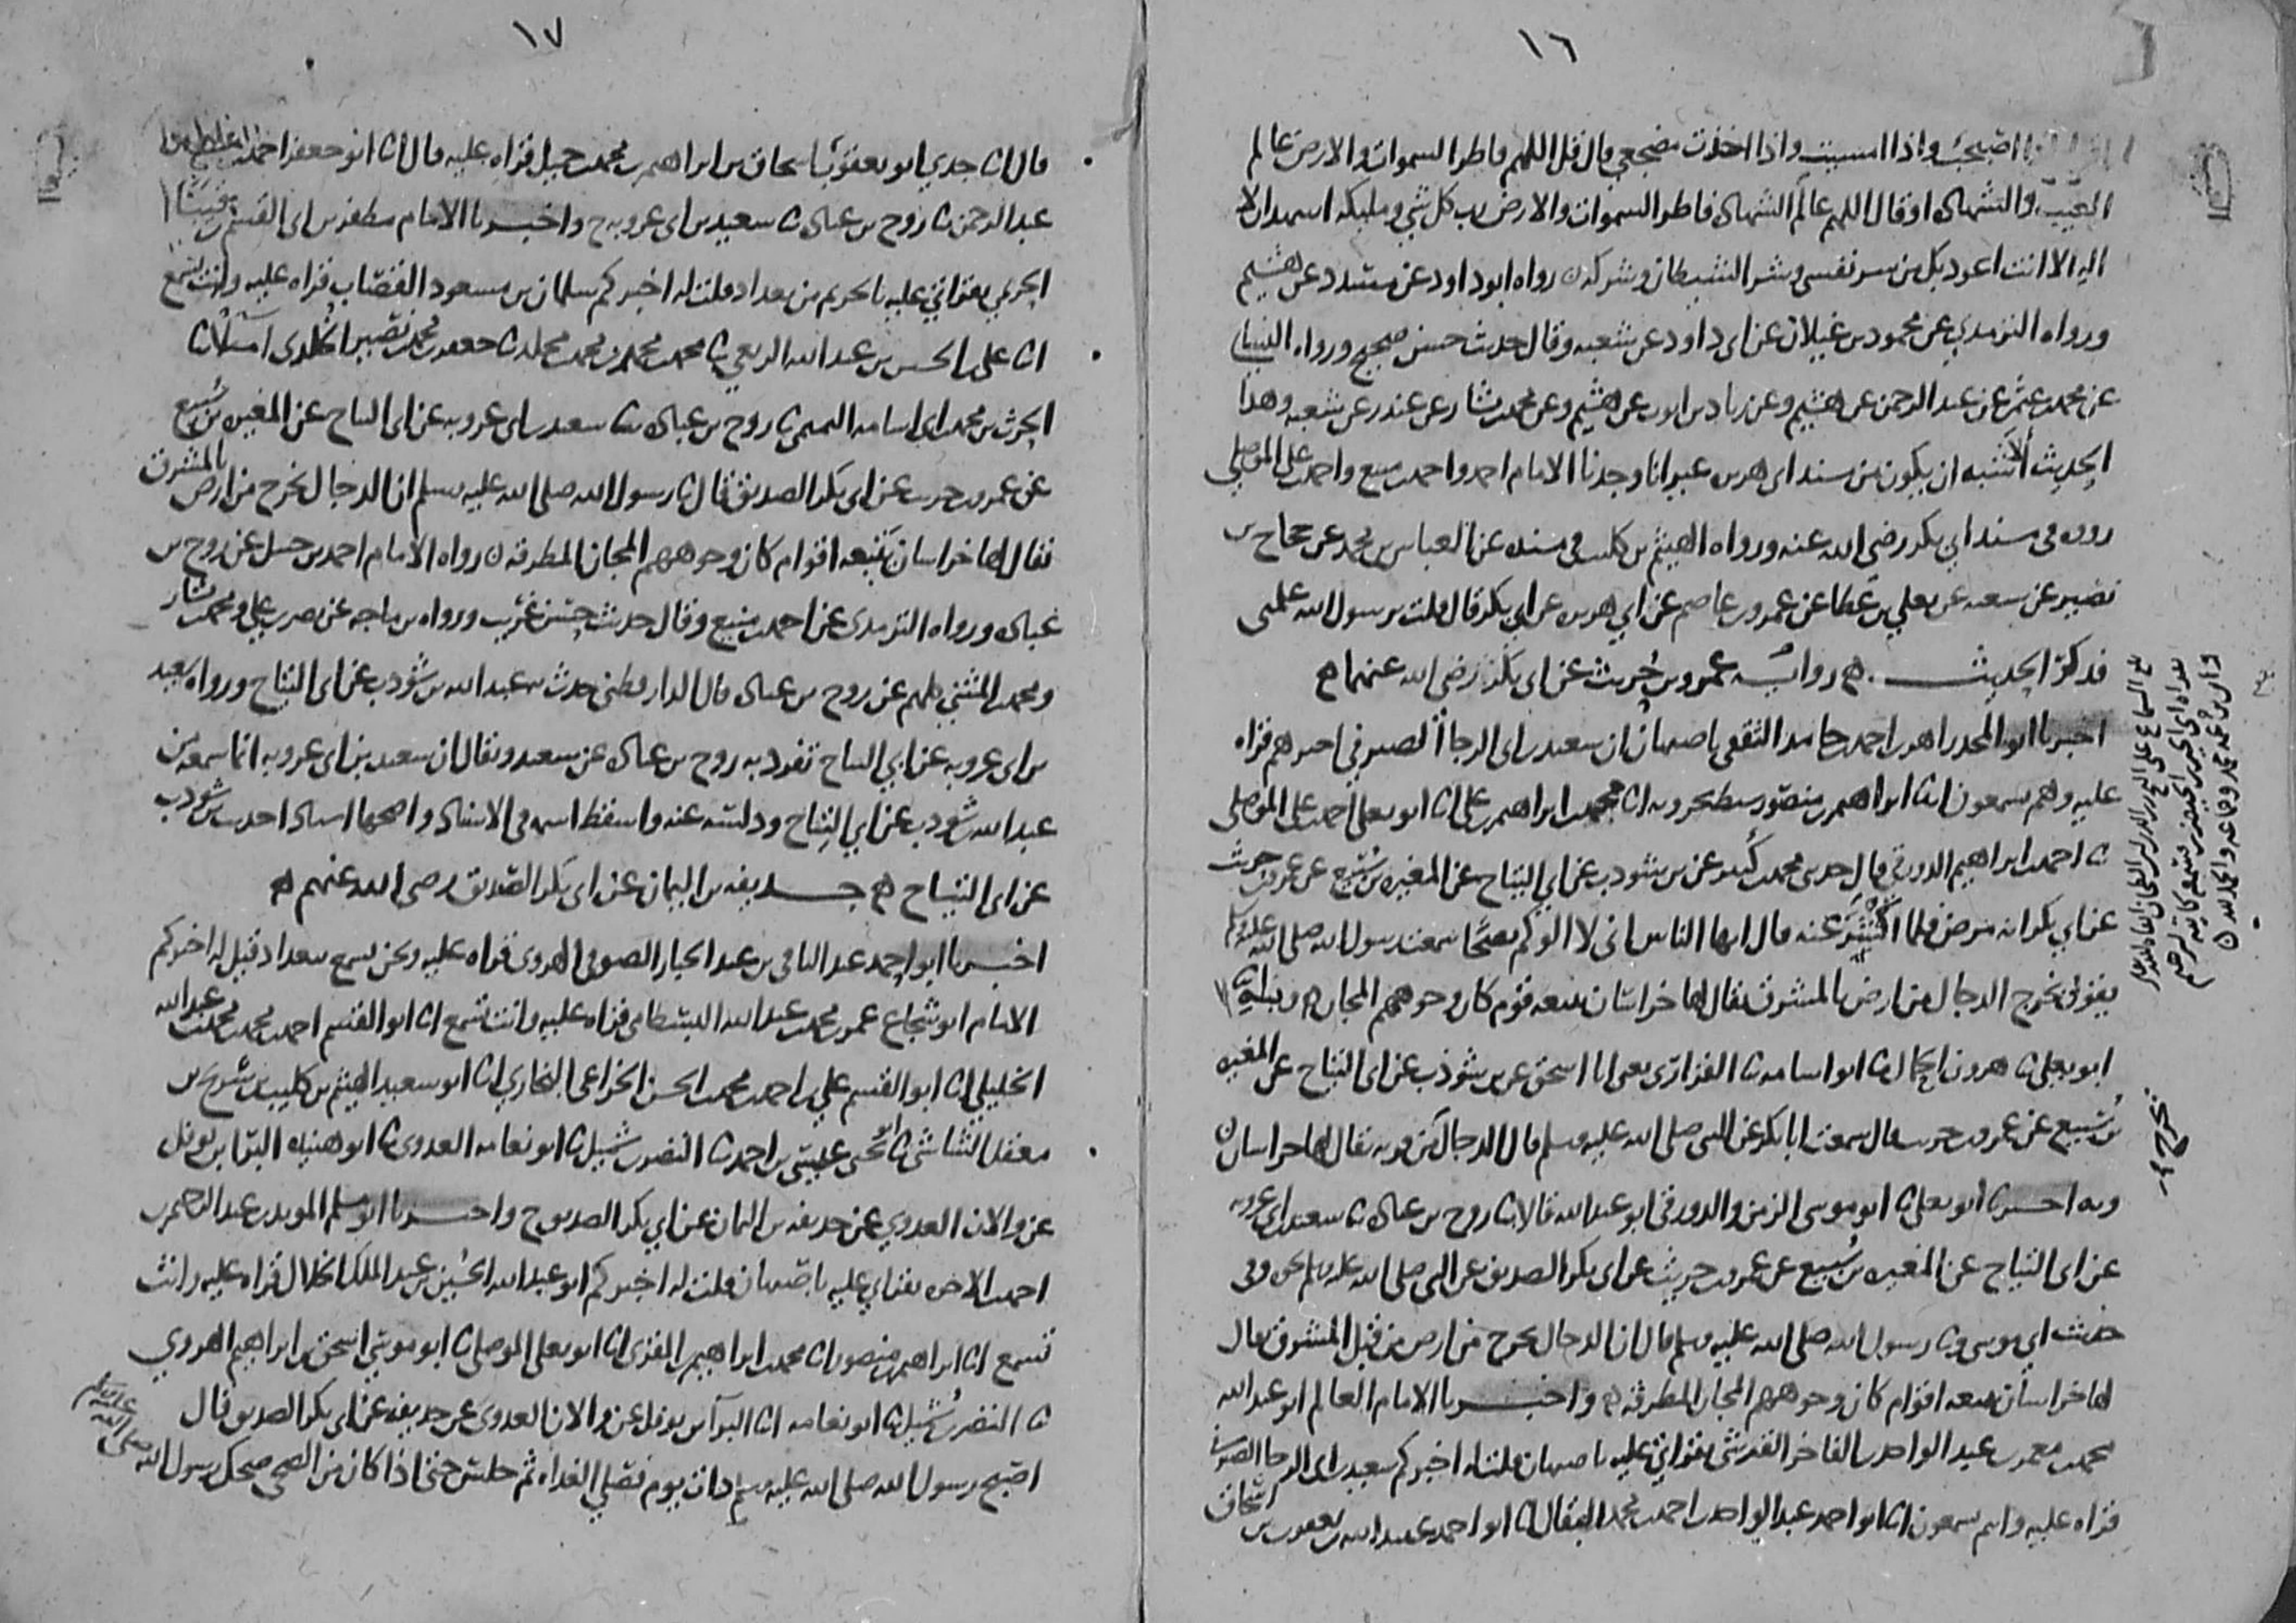 ١٦
اصبحت واذا امسيت واذا اخذت مضجعي قال قل اللهم فاطر السموات والارض عالم
الغيب والشهاده او قال اللهم عالم الشهاده فاطر السموات والارض رب كل شي ومليكه اشهد ان لا
اله الا انت اعوذ بك من شر نفسي وشر الشيطان وشركه ن رواه ابو داود عن مسدد عن هشيم
ورواه الترمذي عن محمود بن غيلان عن ابي داود عن شعبه وقال حديث حسن صحيح ورواه النسائي
عن محمد عن عبد الرحمن عن هشيم وعن زياد بن ايوب عن هشيم وعن محمد بن بشار عن غندر عن شعبه وهذا
الحديث الاشبه ان يكون من مسند ابي هريره غير انا وجدنا الامام احمد واحمد بن منيع واحمد بن علي الموصلي
رووه في مسند ابي بكر رضي الله عنه ورواه الهيثم بن كليب في مسنده عن العباس بن محمد عن حجاج بن
نصير عن شعبه عن يعلي بن عطا عن عمرو بن عاصم عن ابي هريره عن ابي بكر قال قلت يرسول الله علمني
فذكر الحديث ه روايه عمرو بن حريث عن ابي بكر رضي الله عنهما ه
اخبرنا ابو المجد زاهر بن احمد بن حامد الثقفي باصبهان ان سعيد بن ابي الرجا الصيرفي اخبرهم قراه
عليه وهم يسمعون انا ابراهيم بن منصور سبط بحرويه انا محمد بن ابراهيم بن علي انا ابو يعلي احمد بن علي الموصلي
ثا احمد بن ابراهيم الدورقي قال حدثني محمد بن كثير عن بن شوذب عن ابي التياح عن المغيره بن سبيع عن عمرو بن حريث
عن ابي بكر انه مرض فلما كشف عنه قال ايها الناس اني لا الوكم نصحا سمعت رسول الله صلى الله عليه وسلم
يقول يخرج الدجال من ارض بالمشرق يقال لها خراسان يتبعه قوم كان وجوههم المجان ه
ابو يعلي ثا هرون الحمال ثا ابو اسامه ثا الفزاري يعني ابا اسحق عن بن شوذب عن ابي التياح عن المغيره
بن سبيع عن عمرو بن حريث قال سمعت ابا بكر عن النبي صلى الله عليه وسلم قال الدجال من قريه يقال لها خراسان
وبه اخبرنا ابو يعلي ثا ابو موسى الزمن والدورقي ابو عبد الله قالا ثا روح بن عباده ثا سعيد بن ابي عروبه
عن ابي التياح عن المغيره بن سبيع عن عمرو بن حريث عن ابي بكر الصديق عن النبي صلى الله عليه وسلم نحوه وفي
حديث ابي موسى ثا رسول الله صلى الله عليه وسلم قال ان الدجال يخرج من ارض من قبل المشرق يقال
لها خراسان يتبعه اقوام كان وجوههم المجان المطرقه ه واخبرنا الامام العالم ابو عبد الله
محمد بن معمر بن عبد الواحد بن الفاخر القرشي بقراتي عليه باصبهان قلت له اخبركم سعيد بن ابي الرجا الصيرفي
قراه عليه وانتم تسمعون انا ابو احمد عبد الواحد بن احمد بن محمد البقال انا ابو احمد عبيد الله بن يعقوب بن اسحاق
١٧
قال انا جدي ابو يعقوب اسحاق بن ابراهيم بن محمد بن جميل قراه عليه قال انا ابو جعفر احمد بن منيع
عبد الرحمن ثا روح بن عباده ثا سعيد بن ابي عروبه ح واخبرنا الامام مظفر بن ابي القسم
الحربي بقراتي عليه بالحريم من بغداد قلت له اخبركم سلمان بن مسعود القصاب قراه عليه وانت تسمع
انا علي بن الحسين بن عبد الله الربعي ثا محمد بن محمد بن محمد بن مخلد ثا جعفر بن محمد بن نصير الخلدي املا ثا
الحرث بن محمد بن ابي اسامه التميمي ثا روح بن عباده ثنا سعيد بن ابي عروبه عن ابي التياح عن المغيره بن سبيع
عن عمرو بن حريث عن ابي بكر الصديق قال ثا رسول الله صلى الله عليه وسلم ان الدجال يخرج من ارض بالمشرق
يقال لها خراسان يتبعه اقوام كان وجوههم المجان المطرقه ن رواه الامام احمد بن حنبل عن روح بن
عباده ورواه الترمذي عن احمد بن منيع وقال حديث حسن غريب ورواه بن ماجه عن نصر بن علي ومحمد بن بشار
ومحمد بن المثني كلهم عن روح بن عباده قال الدارقطني حدث به عبد الله بن شوذب عن ابي التياح ورواه سعيد
بن ابي عروبه عن ابي التياح تفرد به روح بن عباده عن سعيد ويقال ان سعيد بن ابي عروبه انما سمعه من
عبد الله بن شوذب عن ابي التياح ودلسه عنه واسقط اسمه في الاسناد واصحها اسنادا حديث بن شوذب
عن ابي التياح ه حذيفه بن اليمان عن ابي بكر الصديق رضي الله عنهم ه
اخبرنا ابو احمد عبد الباقي بن عبد الجبار الصوفي الهروي قراه عليه ونحن نسمع ببغداد قيل له اخبركم
الامام ابو شجاع عمر بن محمد بن عبد الله البسطامي قراه عليه وانت تسمع انا ابو القسم احمد بن محمد بن محمد بن عبد الله
الخليلي انا ابو القسم علي بن احمد بن محمد بن الحسن الخزاعي البخاري انا ابو سعيد الهيثم بن كليب بن شريح بن
معقل الشاشي ثا ابو يحيى عيسى بن احمد ثا النضر بن شميل ثا ابو نعامه العدوي ثا ابو هنيده البرا بن نوفل
عن والان العدوي عن حذيفه بن اليمان عن ابي بكر الصديق ح واخبرنا ابو مسلم المويد بن عبد الرحيم بن
احمد بن الاخوه بقراتي عليه باصبهان قلت له اخبركم ابو عبد الله الحسين بن عبد الملك الخلال قراه عليه وانت
تسمع انا ابراهيم بن منصور انا محمد بن ابراهيم بن المقرئ انا ابو يعلي الموصلي ثا ابو موسى اسحق بن ابراهيم الهروي
ثا النضر بن شميل ثا ابو نعامه انا البرا بن نوفل عن والان العدوي عن حذيفه عن ابي بكر الصديق قال
اصبح رسول الله صلى الله عليه وسلم ذات يوم فصلى الغداه ثم جلس حتى اذا كان من الضحى ضحك رسول الله صلى الله عليه وسلم